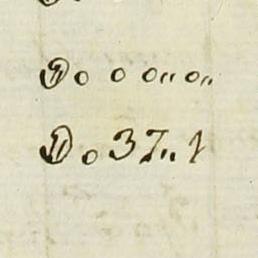 Do 0 0〃 0〃
Do 3 7〃 1